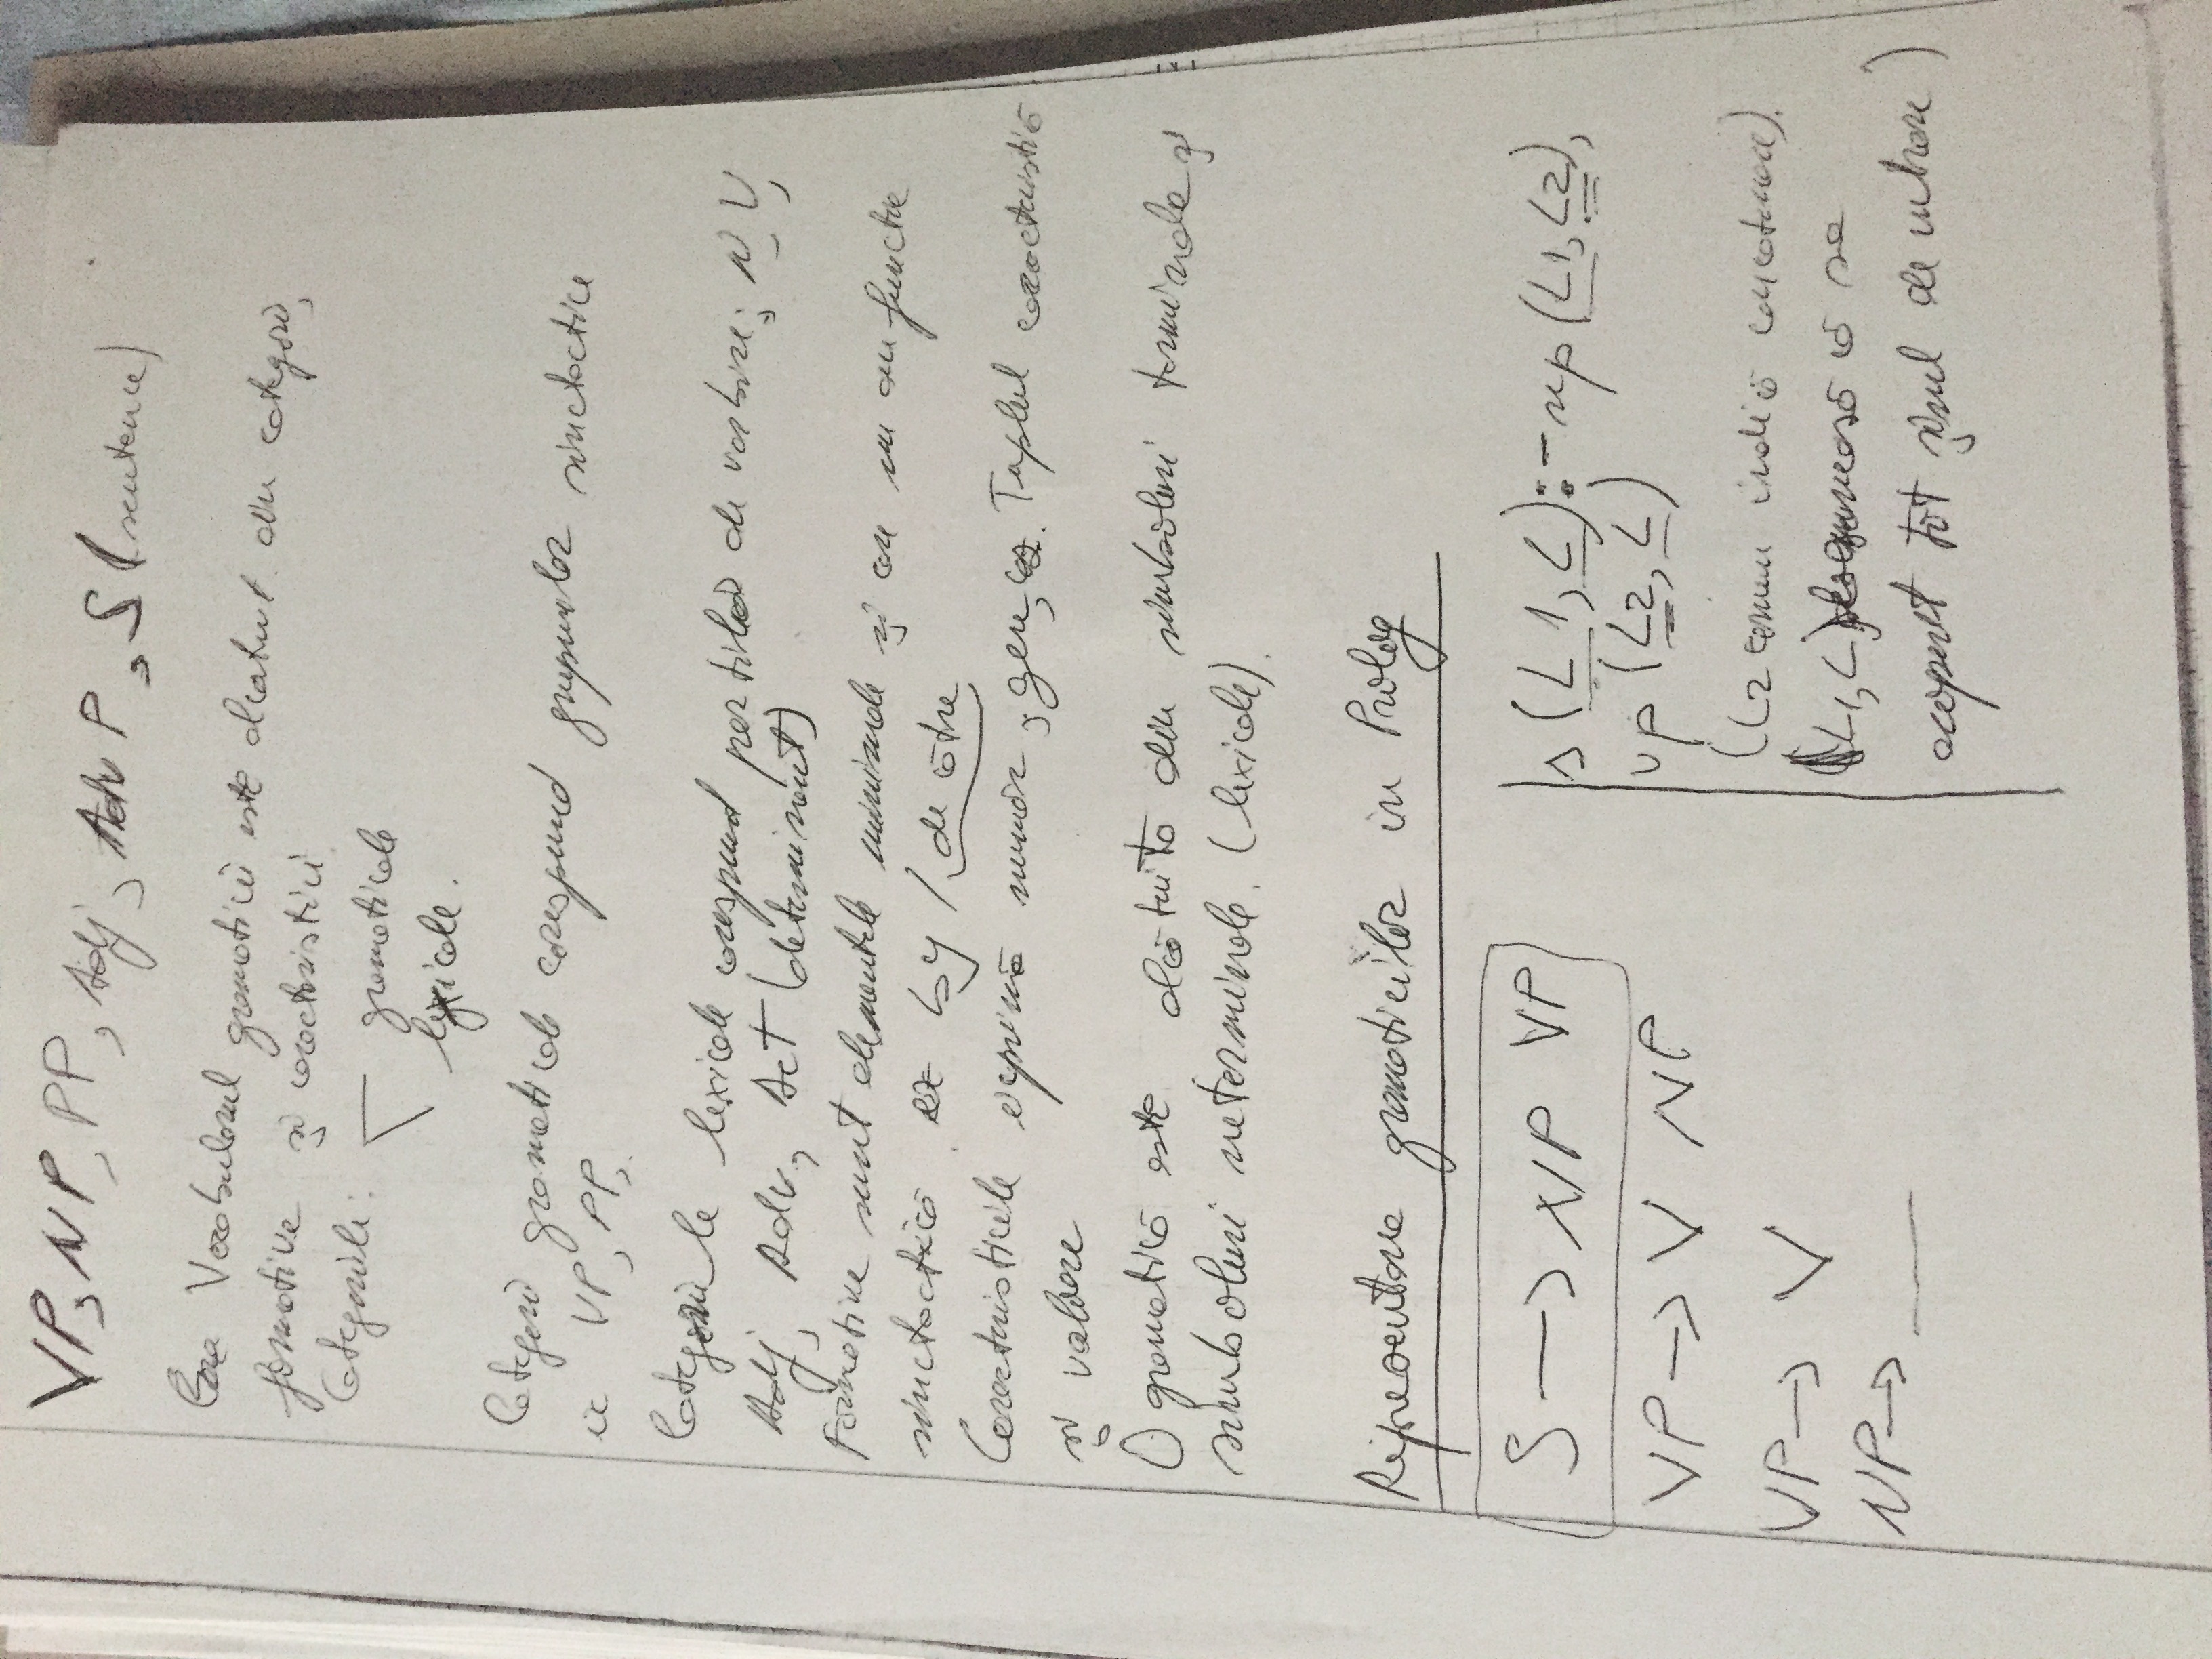 VP, NP, PP, Adj, AdvP, S (sentence)
Vocabularul gramaticii este alcatuit din categorii,
formative și caracteristici
Categoriile:
gramaticale
lexicale.
Categorii gramaticale corespund grupurilor sinctactice
VP, PP,
Categoriile lexicale corespund partilor de vorbire; N, V,
Adj, Adv, (determinant)
Formative sunt elementele minimale și care nu au functie
sinctactică ex by / de către
Caracteristicile exprimă număr, gen, Tuplul caracteristică
și valoare
O gramatică este alcătuită din simboluri terminale și
simboluri neterminale. (lexicale).
Reprezentarea gramaticilor in Prolog
S → NP VP
VP → V NP
VP → V
NP → ___
s (L1, L) :- np (L1, L2),
vp (L2, L)
(L2 comun indică concatenare).
(L1, L) că se
acoperit tot șirul de intrare)